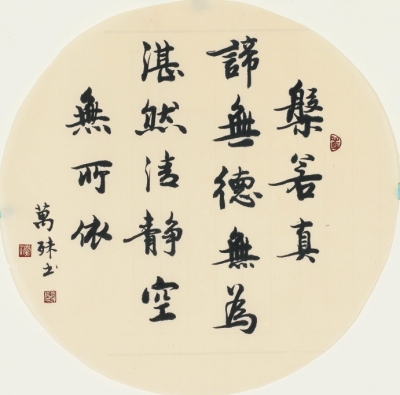 槃若真
諦無德無為
湛然清静空
無所依
萬殊书